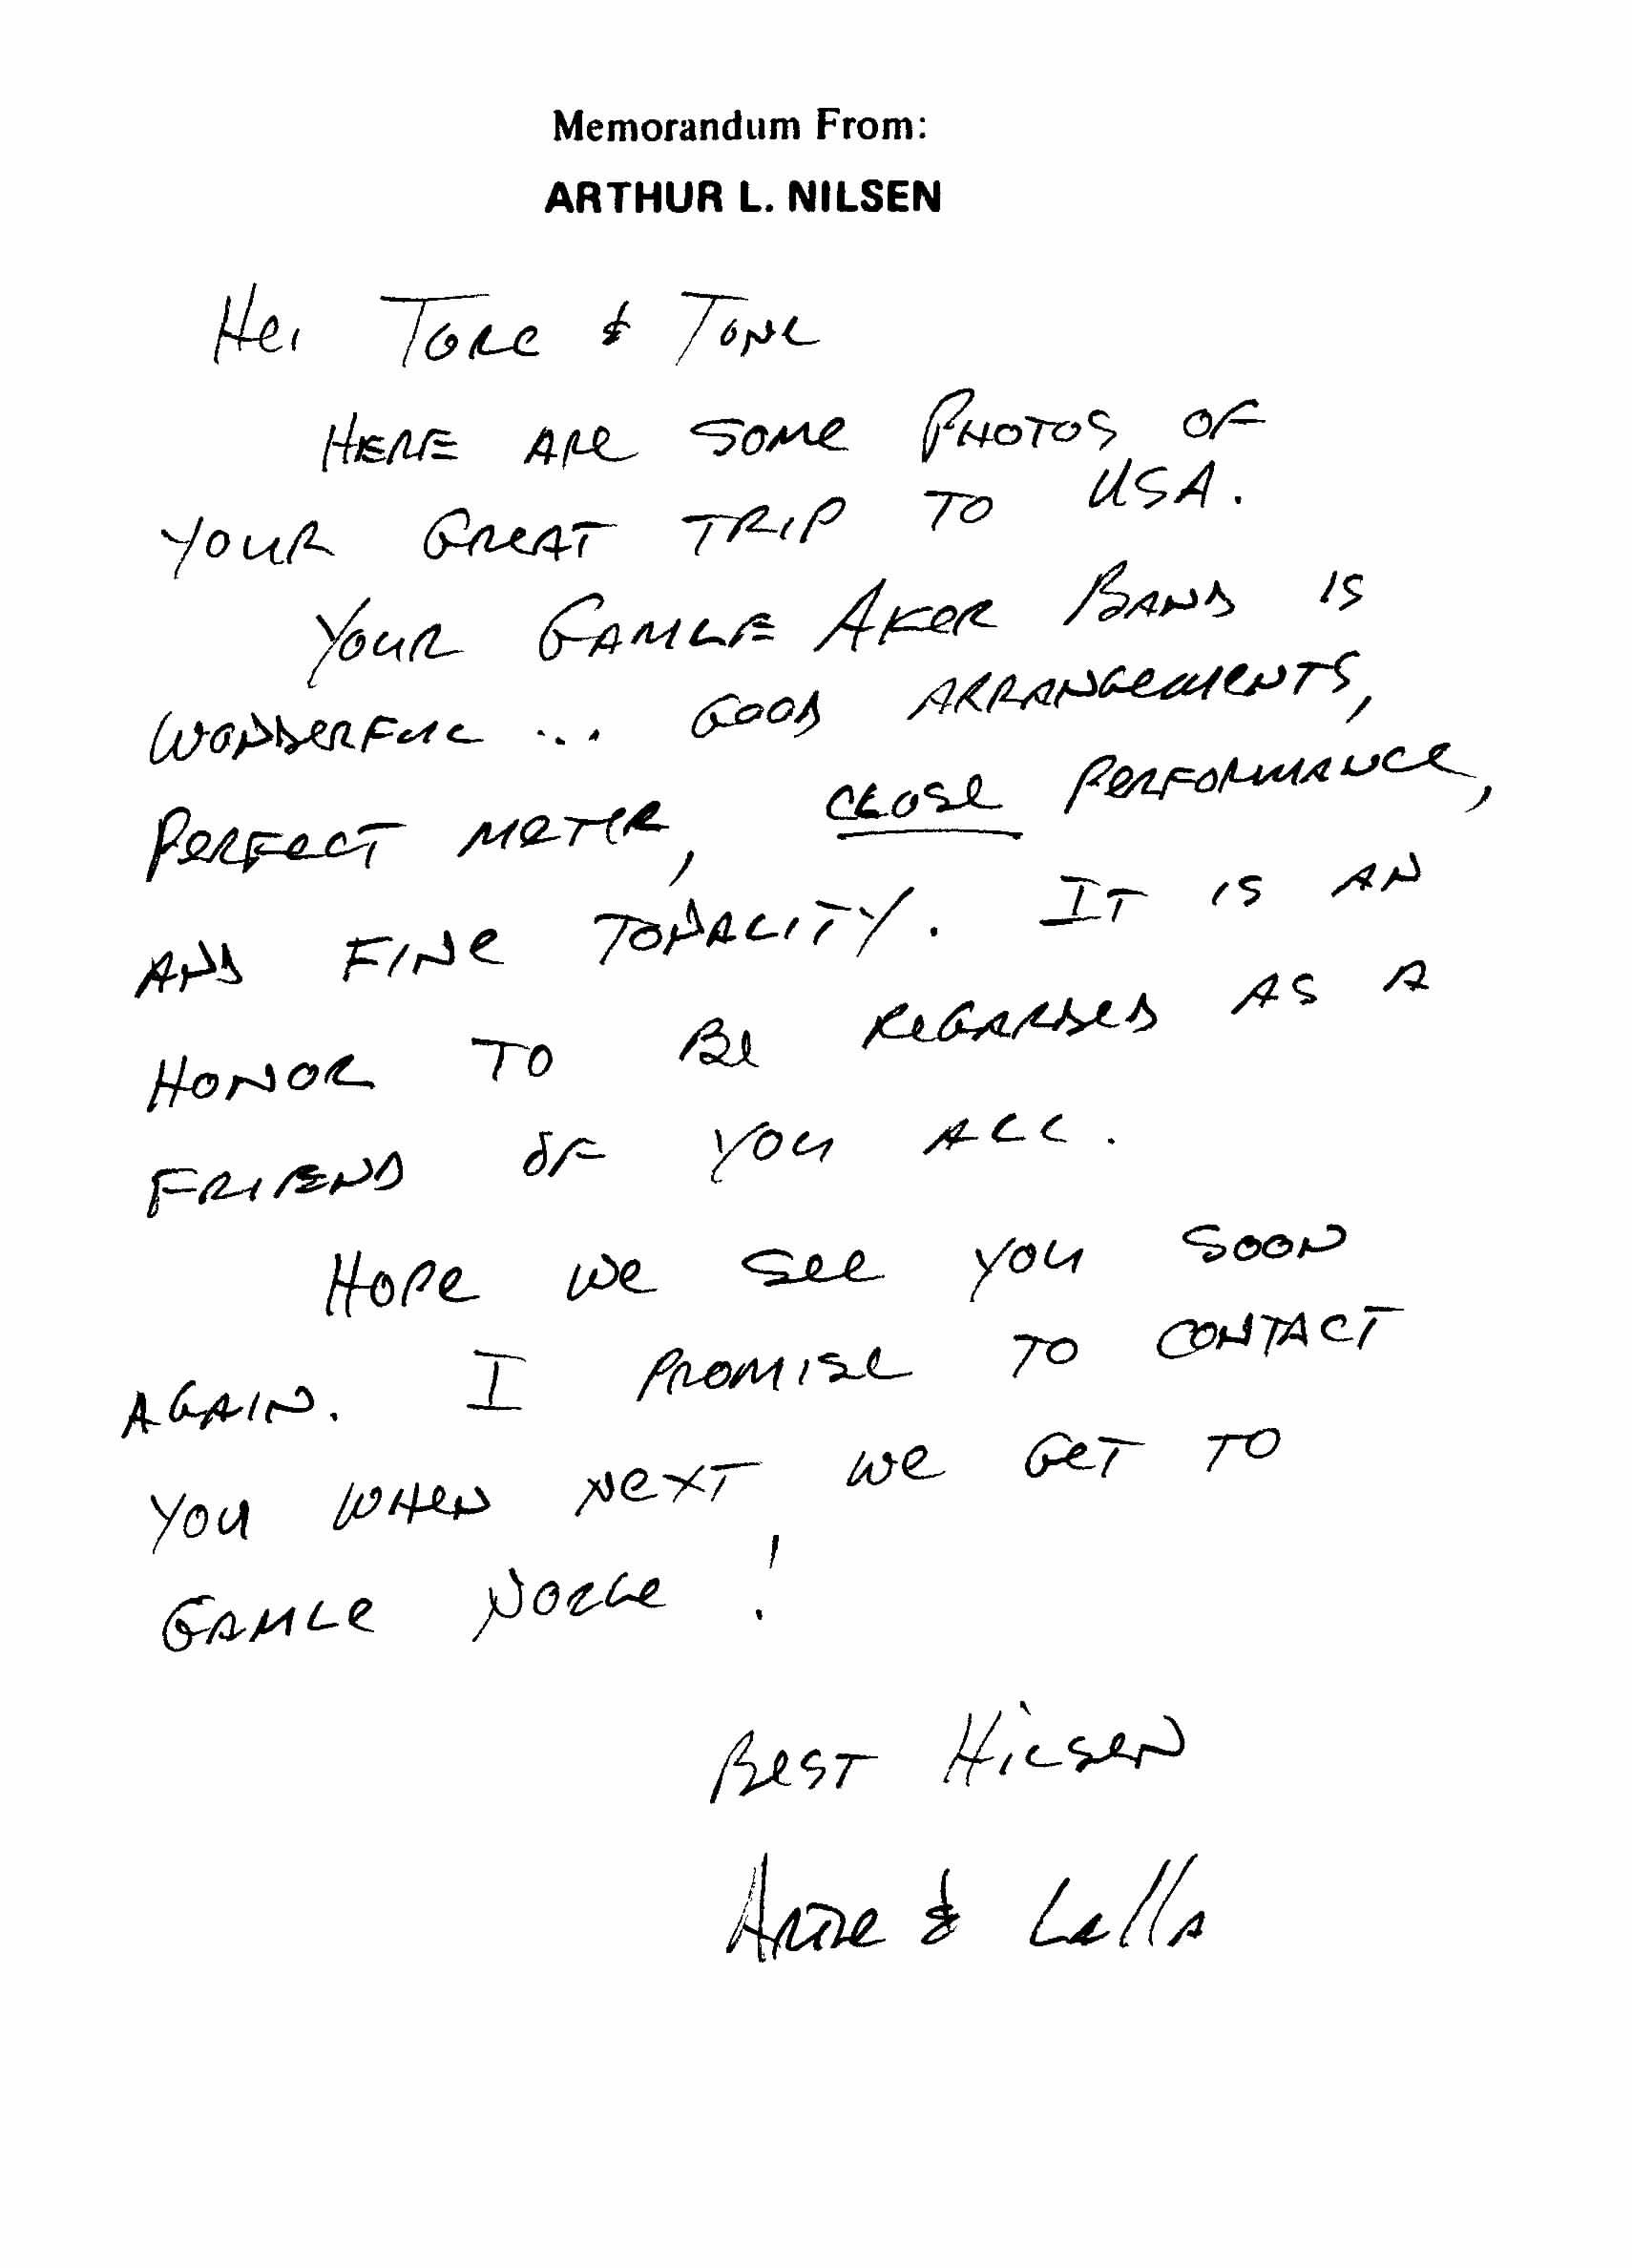 Memorandum From:
ARTHUR L. NILSEN
Hei Tore & Tone
HERE ARE SOME PHOTOS OF
YOUR GREAT TRIP TO USA.
YOUR GAMLE AKER BAND IS
WONDERFUL ... GOOD ARRANGEMENTS,
PERFECT METER, CLOSE PERFORMANCE,
AND FINE TONALITY. IT IS AN
HONOR TO BE REGARDED AS A
FRIEND OF YOU ALL.
HOPE WE SEE YOU SOON
AGAIN. I PROMISE TO CONTACT
YOU WHEN NEXT WE GET TO
GAMLE NORGE !
BEST HILSEN
& Lalla